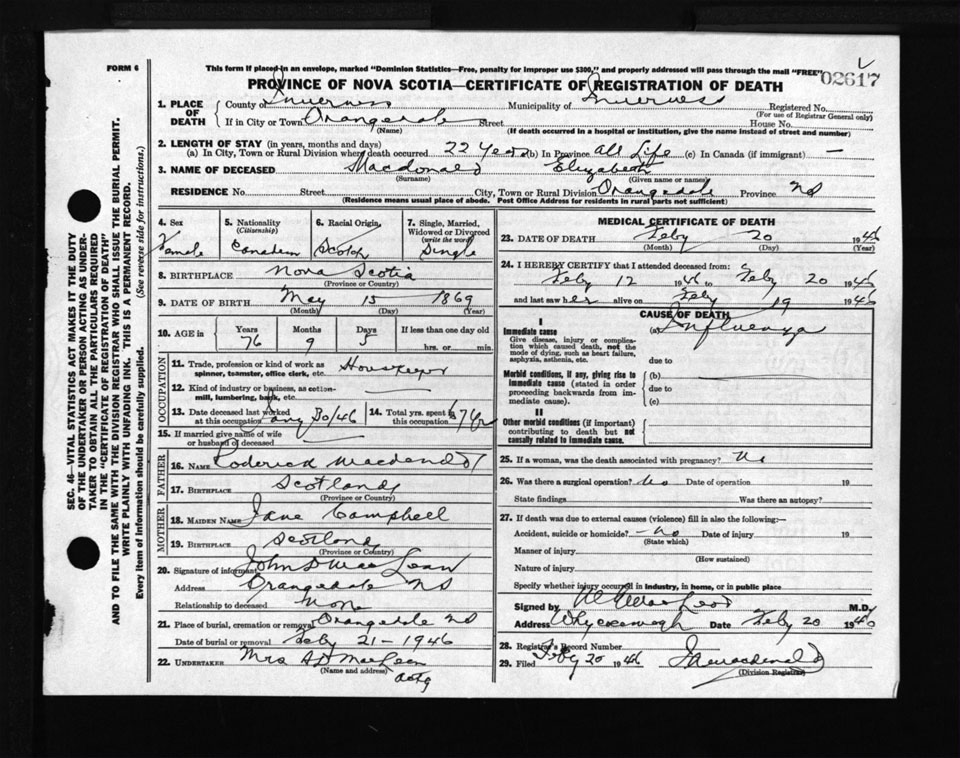 FORM 6
This form if placed in an envelope, marked "Dominion Statistics—Free, penalty for improper use $300," and properly addressed will pass through the mail "FREE"
02617
PROVINCE OF NOVA SCOTIA—CERTIFICATE OF REGISTRATION OF DEATH
1. PLACE OF DEATH { County of Inverness Municipality of Inverness Registered No.
(For use of Registrar General only)
If in City or Town Orangedale Street House No.
(Name) (If death occurred in a hospital or institution, give the name instead of street and number)
2. LENGTH OF STAY (in years, months and days)
(a) In City, Town or Rural Division where death occurred 22 Years (b) In Province all Life (c) In Canada (if immigrant) —
3. NAME OF DECEASED Macdonald Elizabeth
(Surname) (Given name or names)
RESIDENCE No. Street City, Town or Rural Division Orangedale Province NS
(Residence means usual place of abode. Post Office Address for residents in rural parts not sufficient)
4. Sex 5. Nationality (Citizenship) 6. Racial Origin 7. Single, Married, Widowed or Divorced (write the word)
Female Canadian Scotch Single
8. BIRTHPLACE Nova Scotia
(Province or Country)
9. DATE OF BIRTH May 15 1869
(Month) (Day) (Year)
10. AGE in Years Months Days If less than one day old
76 9 5 hrs. or min.
OCCUPATION
11. Trade, profession or kind of work as spinner, teamster, office clerk, etc.
12. Kind of industry or business, as cotton-mill, lumbering, bank, etc.
13. Date deceased last worked at this occupation Jany 30/46 14. Total yrs. spent in this occupation
15. If married give name of wife or husband of deceased
FATHER
16. NAME Roderick Macdonald
17. BIRTHPLACE Scotland
(Province or Country)
MOTHER
18. MAIDEN NAME Jane Campbell
19. BIRTHPLACE Scotland
(Province or Country)
20. Signature of informant John D MacLean
Address Orangedale NS
Relationship to deceased None
21. Place of burial, cremation or removal Orangedale NS
Date of burial or removal Feby 21-1946
22. UNDERTAKER Mrs MacLean
(Name and address)
MEDICAL CERTIFICATE OF DEATH
23. DATE OF DEATH Feby 20 1946
(Month) (Day) (Year)
24. I HEREBY CERTIFY that I attended deceased from:
Feby 12 1946 to Feby 20 1946
and last saw her alive on Feby 19 1946
CAUSE OF DEATH
I
Immediate cause (a) Influenza
Give disease, injury or complication which caused death, not the mode of dying, such as heart failure, asphyxia, asthenia, etc.
due to
Morbid conditions, if any, giving rise to immediate cause (stated in order proceeding backwards from immediate cause).
(b)
due to
(c)
II
Other morbid conditions (if important) contributing to death but not causally related to immediate cause.
25. If a woman, was the death associated with pregnancy? No
26. Was there a surgical operation? No Date of operation 19
State findings Was there an autopsy?
27. If death was due to external causes (violence) fill in also the following:—
Accident, suicide or homicide? No Date of injury 19
(State which)
Manner of injury
(How sustained)
Nature of injury
Specify whether injury occurred in industry, in home, or in public place
Signed by MacLeod M.D.
Address Whycocomagh Date Feby 20 1946
28. Registrar's Record Number
29. Filed Feby 20 1946 Macdonald
(Division Registrar)
SEC. 46—VITAL STATISTICS ACT MAKES IT THE DUTY
OF THE UNDERTAKER OR PERSON ACTING AS UNDER-
TAKER TO OBTAIN ALL THE PARTICULARS REQUIRED
IN THE "CERTIFICATE OF REGISTRATION OF DEATH"
AND TO FILE THE SAME WITH THE DIVISION REGISTRAR WHO SHALL ISSUE THE BURIAL PERMIT.
WRITE PLAINLY WITH UNFADING INK. THIS IS A PERMANENT RECORD.
Every item of information should be carefully supplied. (See reverse side for instructions.)